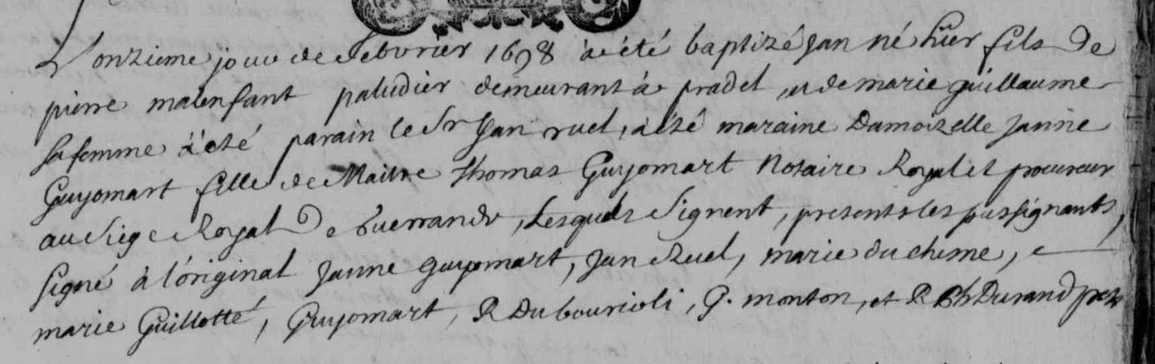 L'onzieme jour de febvrier 1698 a été baptizé Jan né hier fils de
pierre malenfant paludier demeurant à pradel, et de marie guillaume
sa femme a été parain le Sr Jan ruel, a été maraine Damoizelle Janne
Guyomart fille de Maitre Thomas Guyomart Notaire Royal et procureur
au Siege Royal de Guerrande, Lesquels Signent, presents les sussignants,
signé à l'original Janne guyomart, Jan Ruel, marie du chesne,
marie Guillotté, Guyomart, R Dubourioli, G. monton, et R Ph Durand pretre